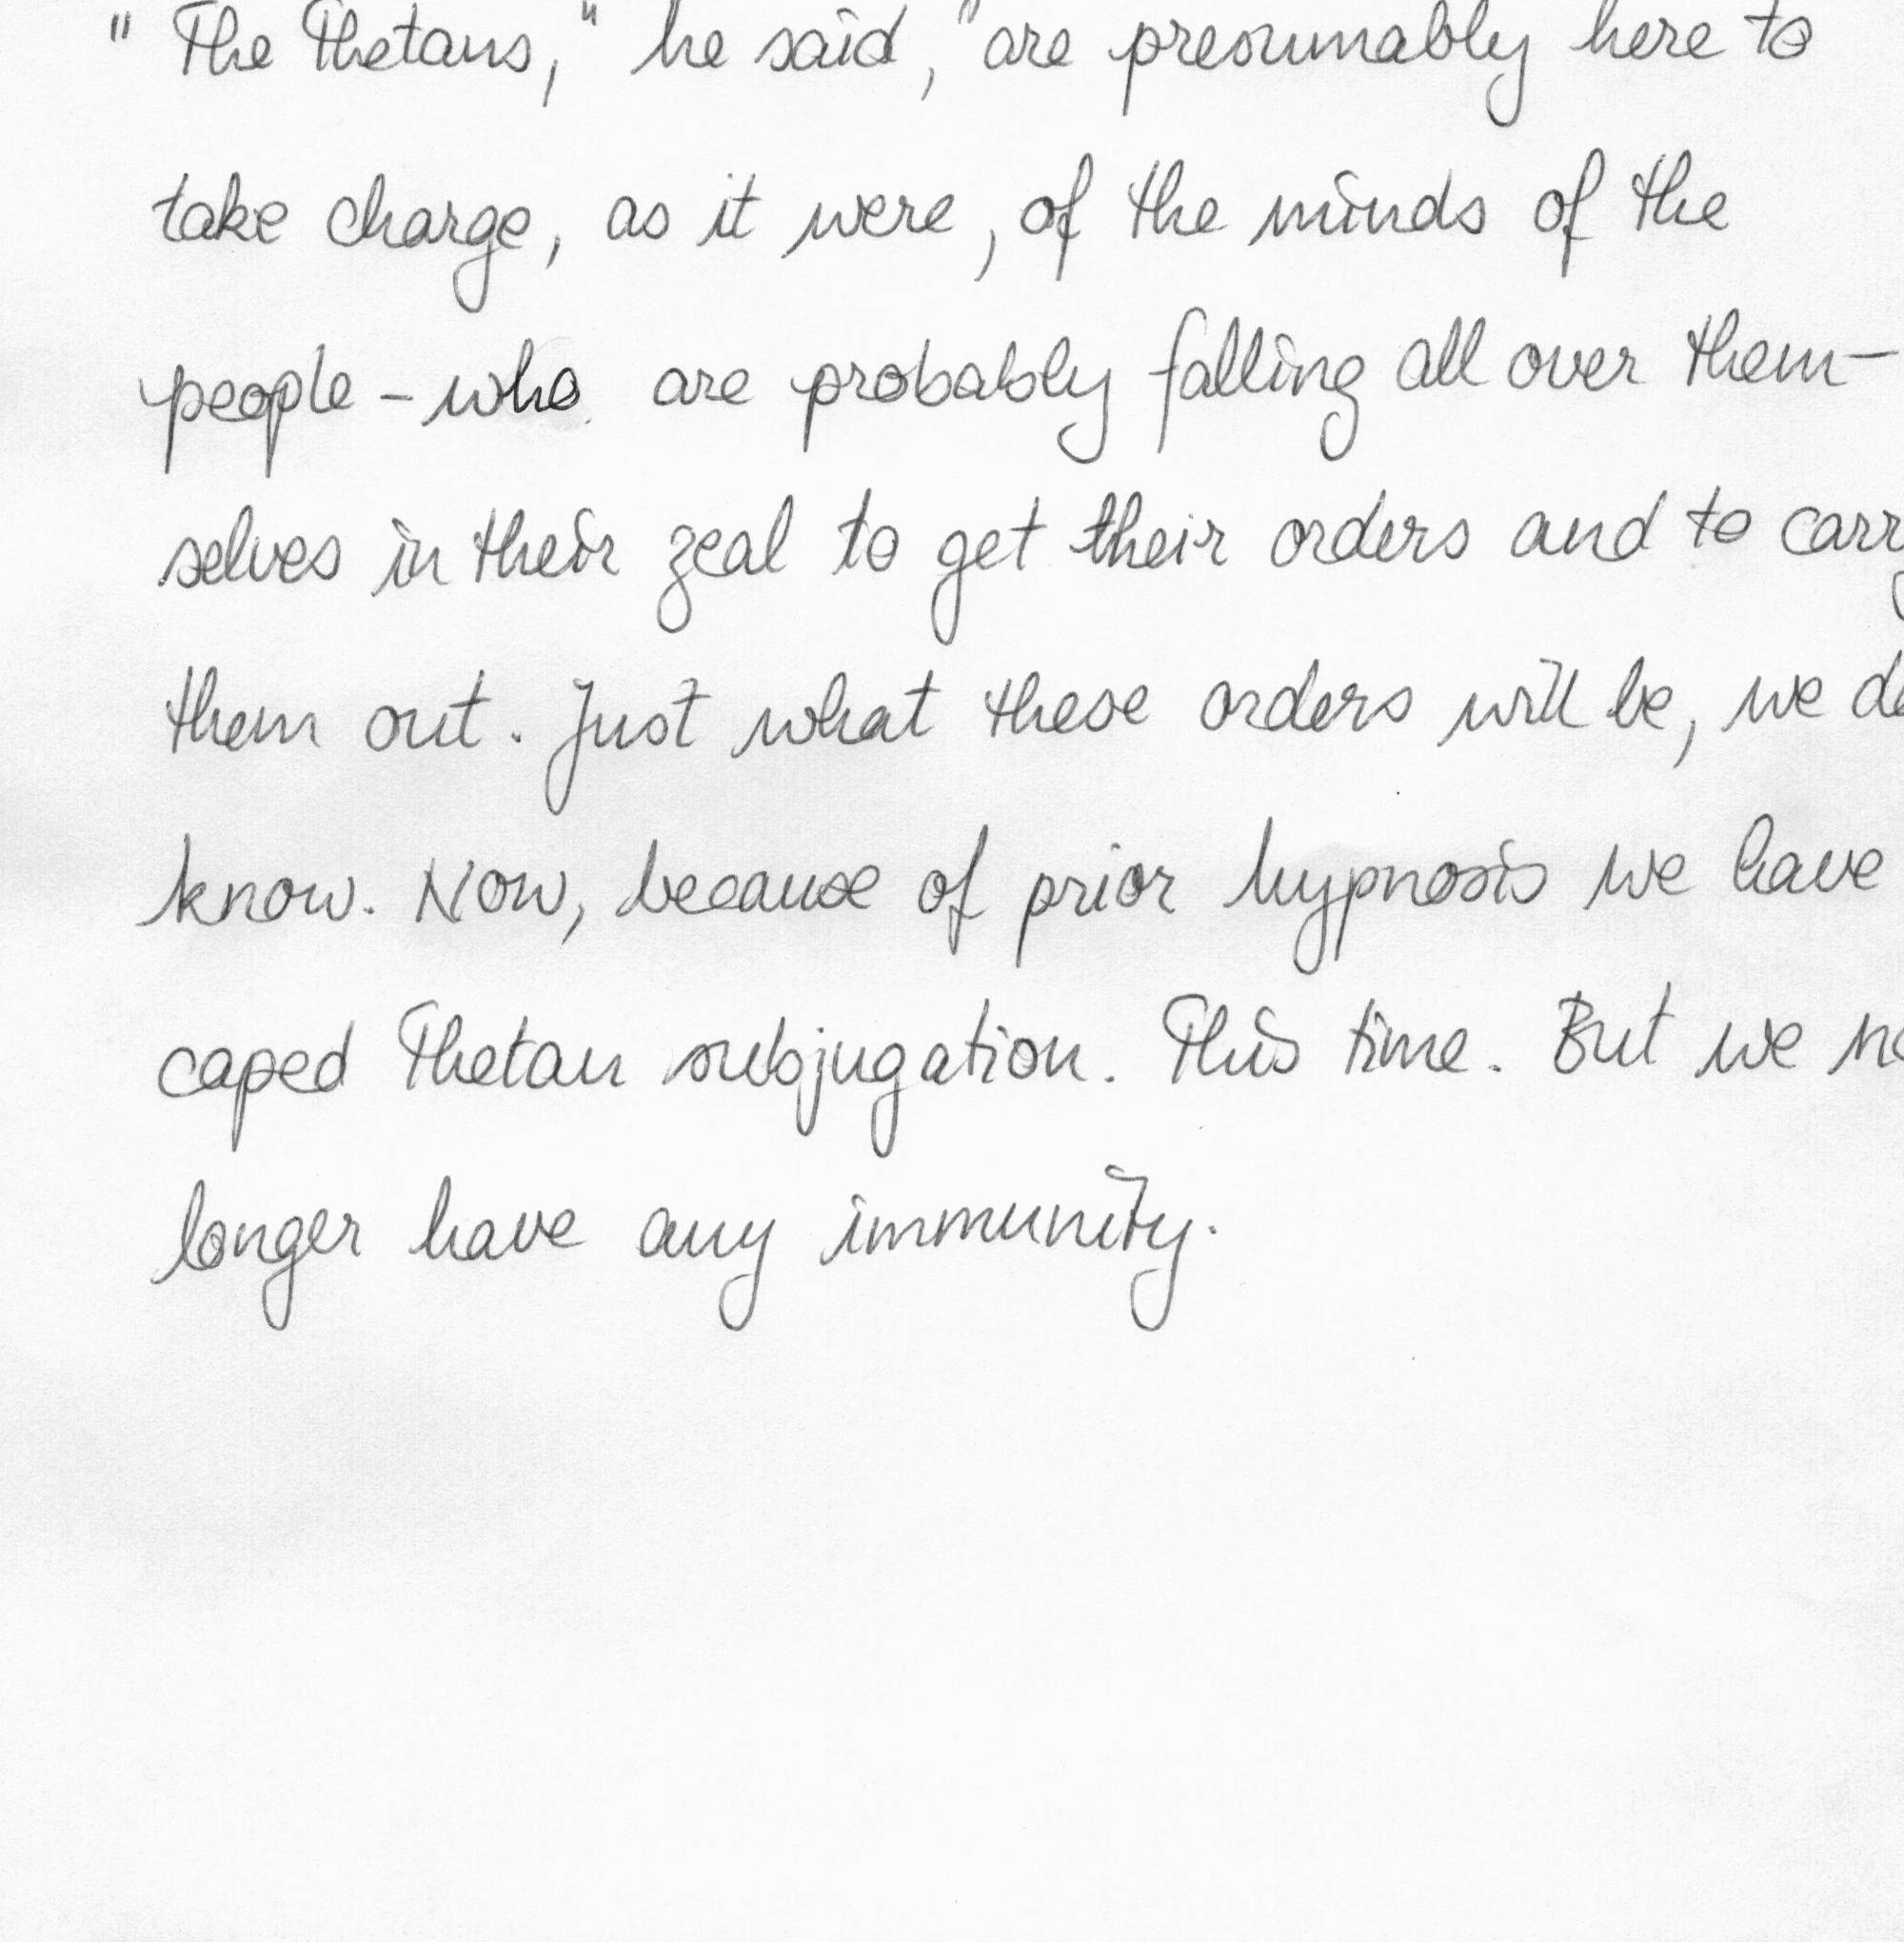 "The Thetans," he said, "are presumably here to
take charge, as it were, of the minds of the
people - who are probably falling all over them-
selves in their zeal to get their orders and to carry
them out. Just what these orders will be, we
know. Now, because of prior hypnosis we have
caped Thetan subjugation. This time. But we
longer have any immunity.